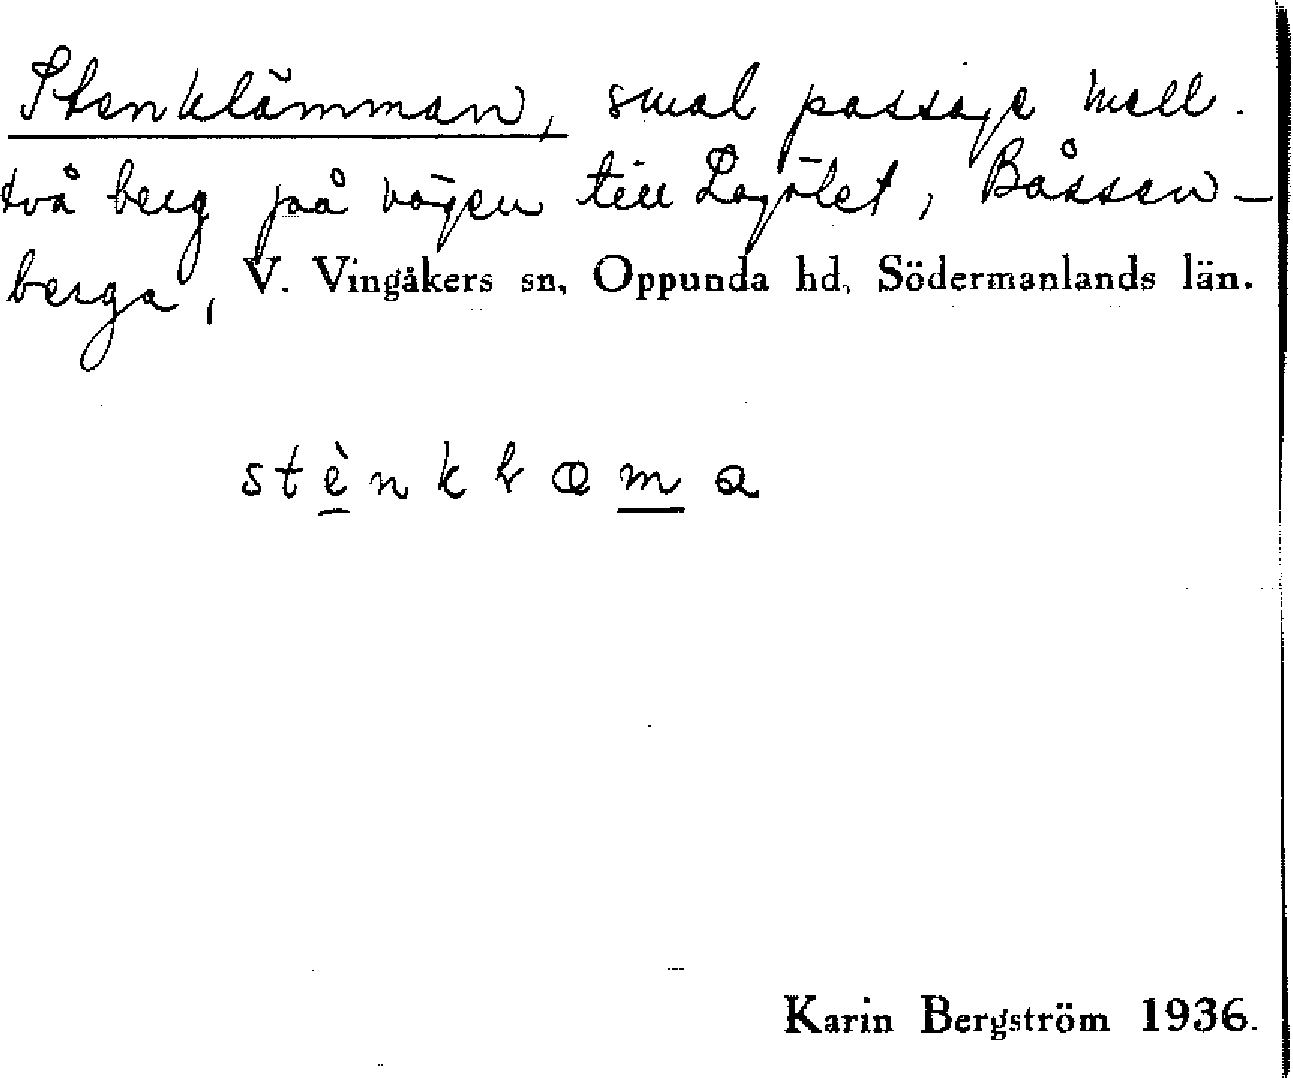 Stenklämman, smal passage mell.
två berg på vägen till Logölet, Båssen-
berga, V. Vingåkers sn, Oppunda hd, Södermanlands län.
stènkłæma
Karin Bergström 1936.